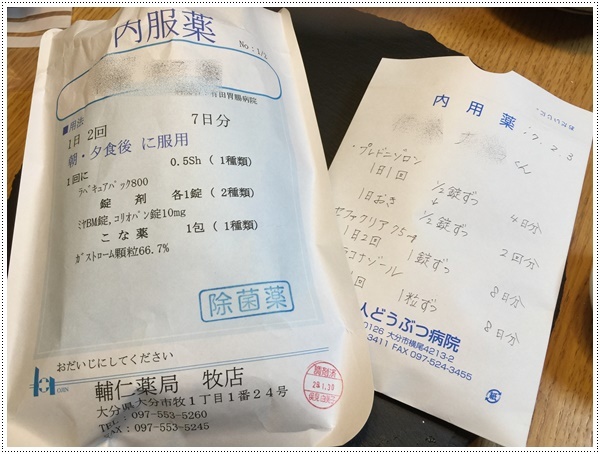 内服薬
No:1/2
有田胃腸病院
■用法
1日 2回 7日分
朝・夕食後 に服用
1回に 0.5Sh ( 1種類)
ﾗﾍﾞｷｭｱﾊﾟｯｸ800
錠 剤 各1錠 ( 2種類)
ﾐﾔBM錠,コリオパン錠10mg
こな薬 1包 ( 1種類)
ｶﾞｽﾄﾛｰﾑ顆粒66.7%
除菌薬
おだいじにしてください
輔仁薬局 牧店
大分県大分市牧1丁目1番24号
TEL : 097-553-5260
FAX : 097-553-5245
調剤済
内用薬
くん
・プレドニゾロン
1日1回 1/2錠ずつ 4日分
↓
1日おき 1/2錠ずつ 2回分
セファクリア75P
1日2回 1錠ずつ 8日分
ラコナゾール
1回 1粒ずつ 8日分
人どうぶつ病院
0126 大分市横尾4213-2
3411 FAX 097-524-3455